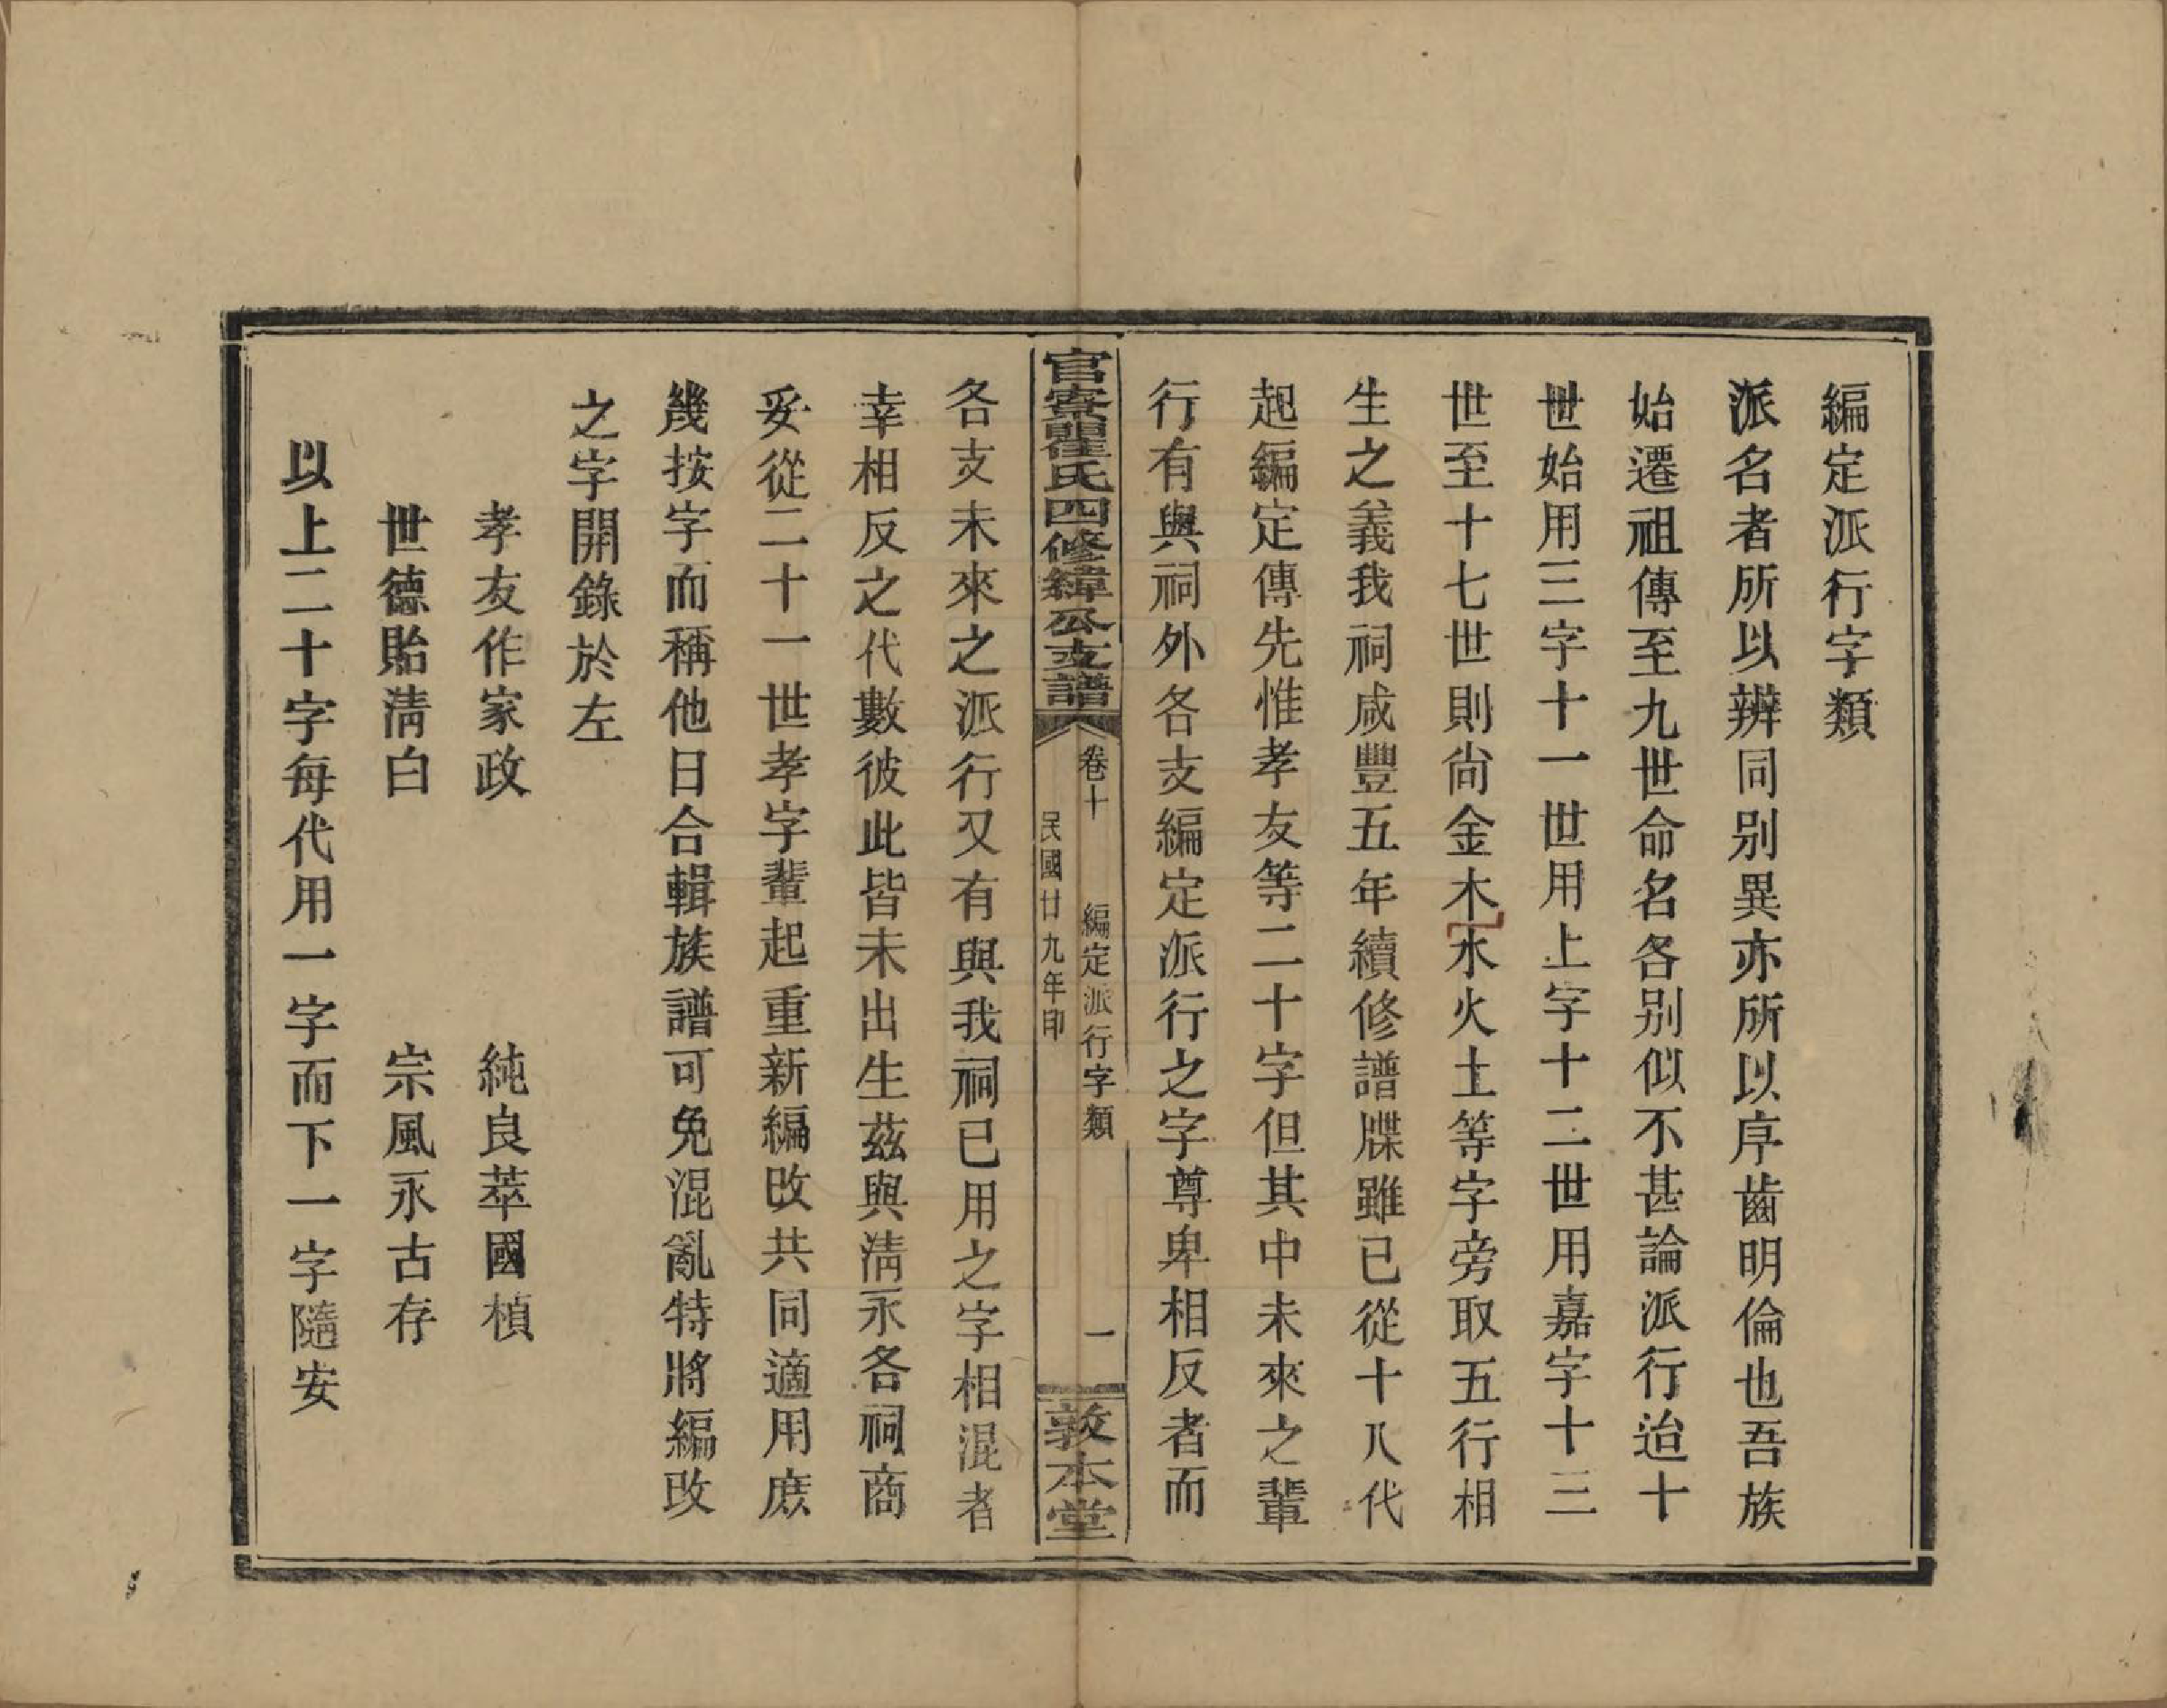 編定派行字類
派名者所以辨同别異亦所以序齒明倫也吾族
始遷祖傳至九世命名各别似不甚論派行迨十
世始用三字十一世用上字十二世用嘉字十三
世至十七世則尚金木水火土等字旁取五行相
生之義我祠咸豐五年續修譜牒雖已從十八代
起編定傳先惟孝友等二十字但其中未來之輩
行有與祠外各支編定派行之字尊卑相反者而
官寮瞿氏四修緯公支譜
卷十　編定派行字類　一
民國廿九年印
敦本堂
各支未來之派行又有與我祠已用之字相混者
幸相反之代數彼此皆未出生茲與淸永各祠商
妥從二十一世孝字輩起重新編改共同適用庶
幾按字而稱他日合輯族譜可免混亂特將編改
之字開錄於左
孝友作家政　純良萃國楨
世德貽淸白　宗風永古存
以上二十字每代用一字而下一字隨安